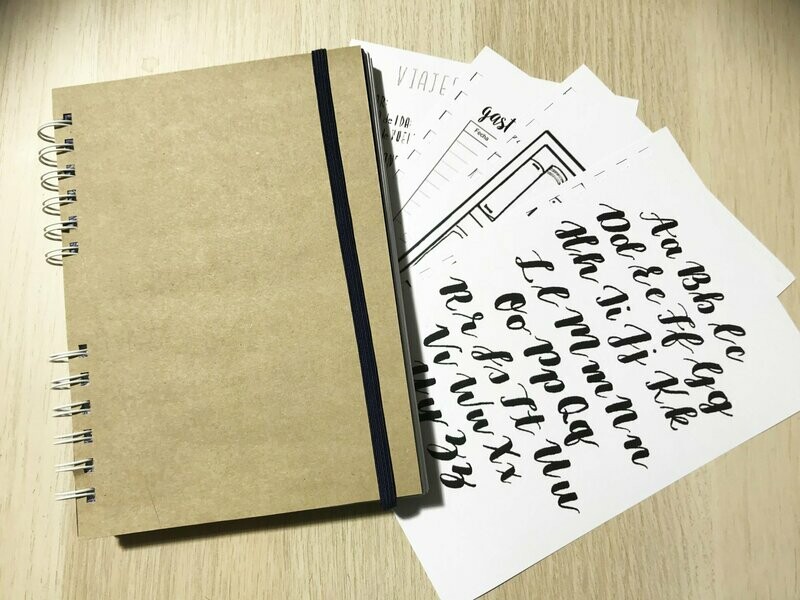 VIAJES
de IDA:
gast
Fecha
Aa Bb Cc
Dd Ee Ff Gg
Hh Ii Jj Kk
Ll Mm Nn
Oo Pp Qq
Rr Ss Tt Uu
Vv Ww Xx
Yy Zz